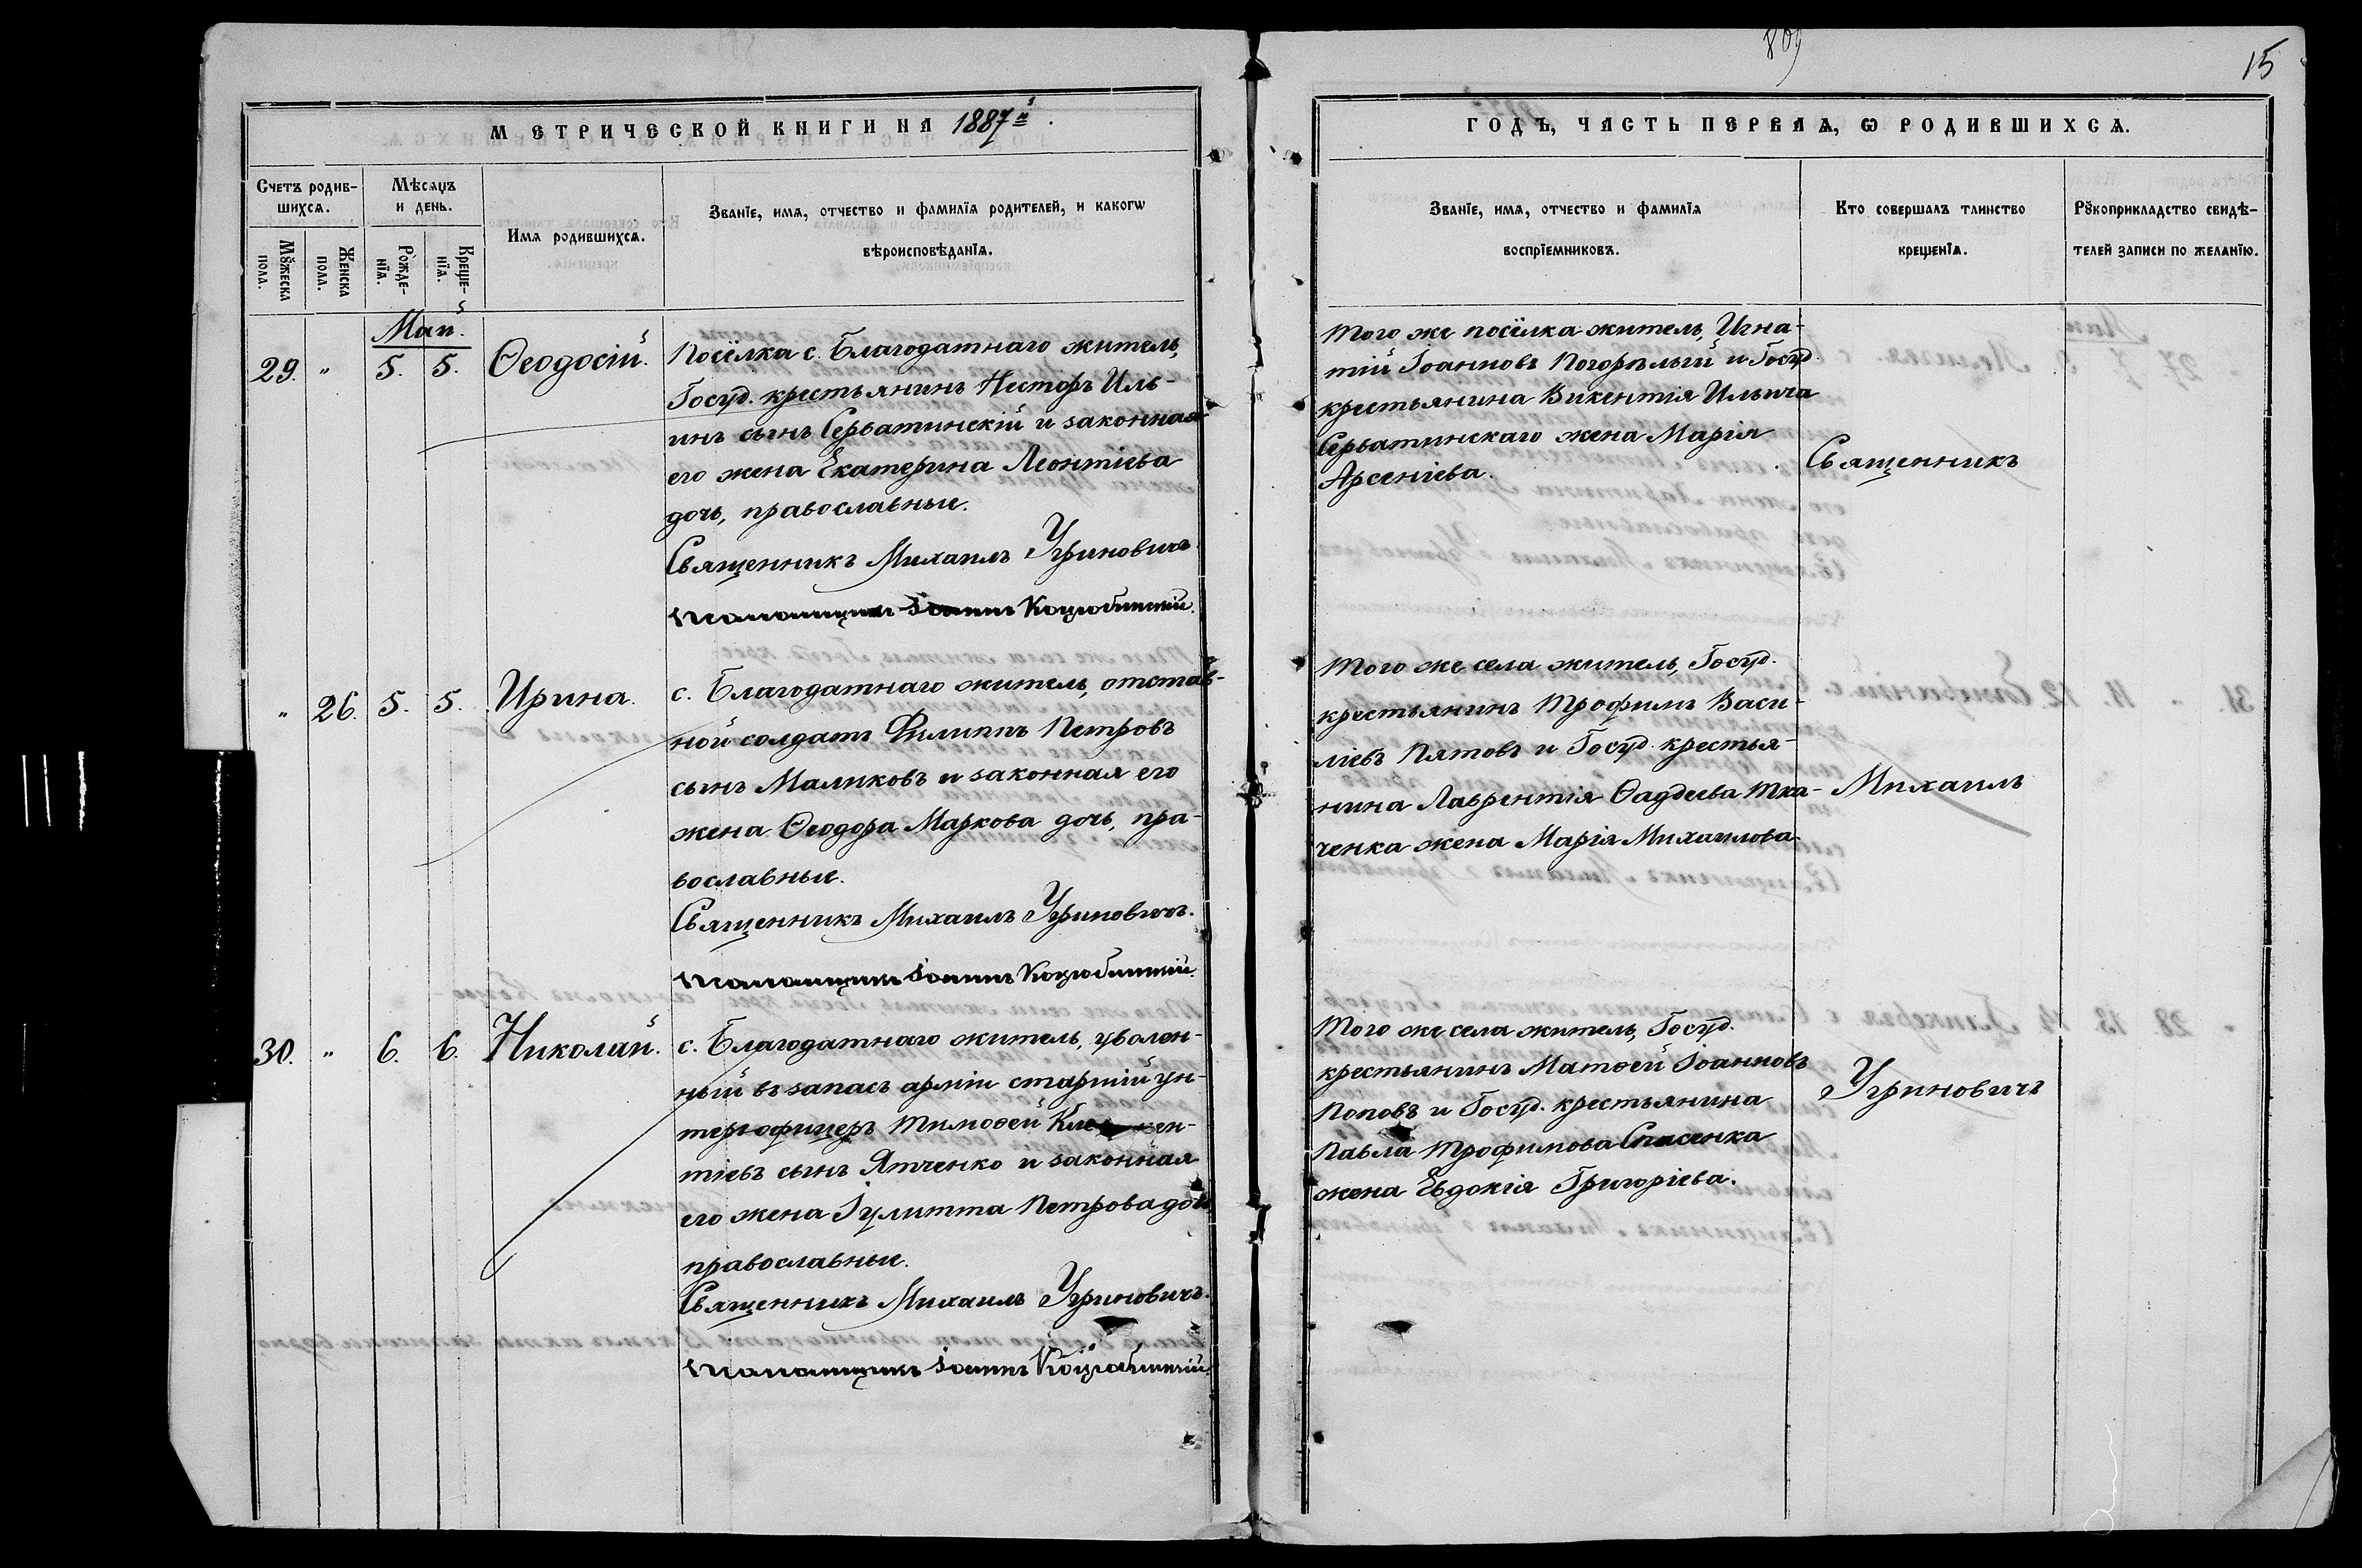 809
15
МЕТРИЧЕСКОЙ КНИГИ НА 1887й.
ГОДЪ, ЧАСТЬ ПЕРВАЯ, Ѡ РОДИВШИХСѦ.
Счетъ родив-
шихсѧ.
Мѣсѧцъ
и день.
Имѧ родившихсѧ.
Званїе, имѧ, отчество и фамилїѧ родителей, и какогѡ
вѣроисповѣданїѧ.
Мꙋжеска
пола.
Женска
пола.
Рожде-
нїѧ.
Креще-
нїѧ.
Званїе, имѧ, отчество и фамилїѧ
воспрїемниковъ.
Кто совершалъ таинство
крещенїѧ.
Рꙋкоприкладство свидѣ-
телей записи по желанїю.
Май.
29. " 5. 5. Ѳеодосій.
Посёлка с. Благодатнаго житель,
Госуд. крестьянинъ Несторъ Иль-
инъ сынъ Серватинскій и законная
его жена Екатерина Леонтіева
дочь, православные.
Священникъ Михаилъ Угриновичъ
Пономарь Іоаннъ Коцюбинскій.
Того же посёлка житель, Игна-
тій Іоанновъ Погорѣлый и Госуд.
крестьянина Викентія Ильича
Серватинскаго жена Марія
Арсеніева.
Священникъ
" 26. 5. 5. Ирина.
с. Благодатнаго житель, отстав-
ной солдатъ Филиппъ Петровъ
сынъ Маликовъ и законная его
жена Ѳеодора Маркова дочь, пра-
вославные.
Священникъ Михаилъ Угриновичъ.
Іоаннъ Коцюбинскій.
Того же села житель, Госуд.
крестьянинъ Трофимъ Васи-
ліевъ Пятовъ и Госуд. крестья-
нина Лаврентія Ѳаддеева Тка-
ченка жена Марія Михаилова
Михаилъ
30. " 6. 6. Николай.
с. Благодатнаго житель, уволен-
ный въ запасъ арміи старшій ун-
теръ-офицеръ Тимоѳей
тіевъ сынъ Ятченко и законная
его жена Іулитта Петрова дочь
православные.
Священникъ Михаилъ Угриновичъ.
Іоаннъ Коцюбинскій.
Того же села житель, Госуд.
крестьянинъ Матѳей Іоанновъ
Поповъ и Госуд. крестьянина
Павла Трофимова Спасенка
жена Евдокія Григоріева.
Угриновичъ